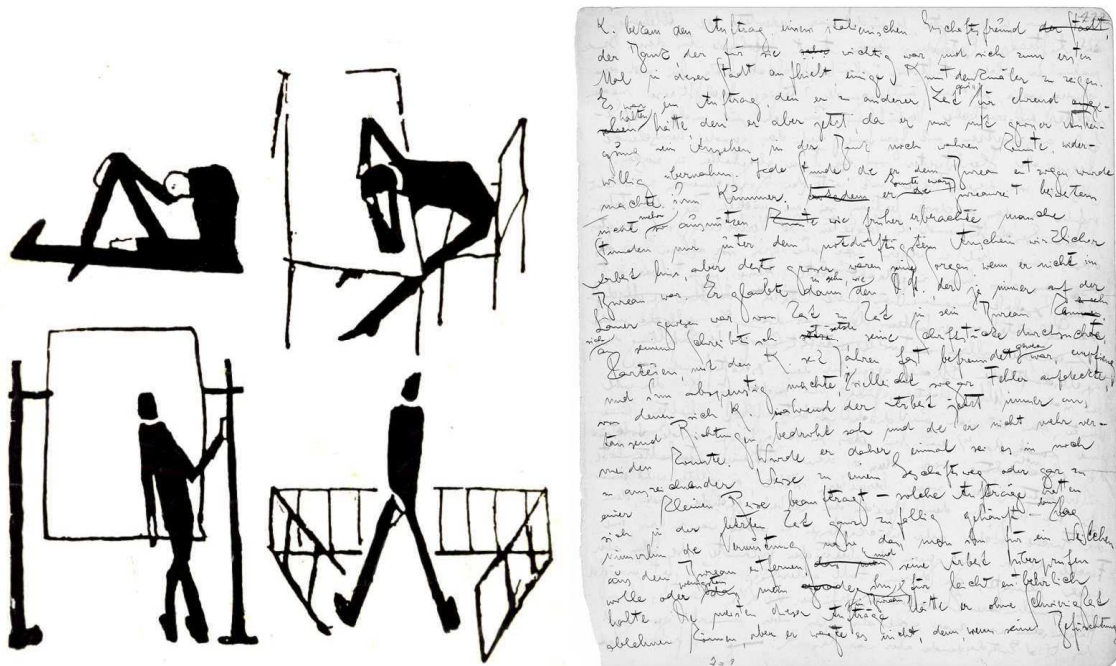 K. bekam den Auftrag, einem italienischen Geschäftsfreund der Stadt,
der Bank, der für sie sehr wichtig war und sich zum ersten
Mal in dieser Stadt aufhielt einige Kunstdenkmäler zu zeigen.
Es war ein Auftrag, den er zu anderer Zeit gewiß für ehrend
hätte, den er aber jetzt, da er nur mit grosser Anstren-
gung sein Ansehen in der Bank noch wahren konnte, wider-
willig übernahm. Jede Stunde die er dem Bureau entzogen wurde
machte ihm Kummer, er konnte zwar die Bureauzeit bei weitem
nicht mehr so ausnützen konnte wie früher, er brachte manche
Stunden nur unter dem notdürftigsten Anschein wirklicher
Arbeit hin, aber desto grösser waren seine Sorgen, wenn er nicht im
Bureau war. Er glaubte dann zu sehn, wie der D. St., der ja immer auf der
Lauer gewesen war von Zeit zu Zeit in sein Bureau
sich an seinen Schreibtisch setzte seine Schriftstücke durchsuchte,
Parteien, mit denen K seit Jahren fast befreundet gewesen war, empfieng
und ihm abspenstig machte vielleicht sogar Fehler aufdeckte,
von denen sich K. während der Arbeit jetzt immer aus
tausend Richtungen bedroht sah und die er nicht mehr ver-
meiden konnte. Wurde er daher einmal sei es in noch
so auszeichnender Weise zu einem Geschäftsweg oder gar zu
einer kleinen Reise beauftragt – solche Aufträge hatten
sich in der letzten Zeit ganz zufällig gehäuft dann lag
immerhin die Vermutung nahe, das man ihn für ein Weilchen
aus dem Bureau entfernen und seine Arbeit überprüfen
wolle oder wenigstens man im Bureau für leicht entbehrlich
halte. Die meisten dieser Aufträge hätte er ohne Schwierigkeit
ablehnen können, aber er wagte es nicht, denn, wenn seine Befürchtung